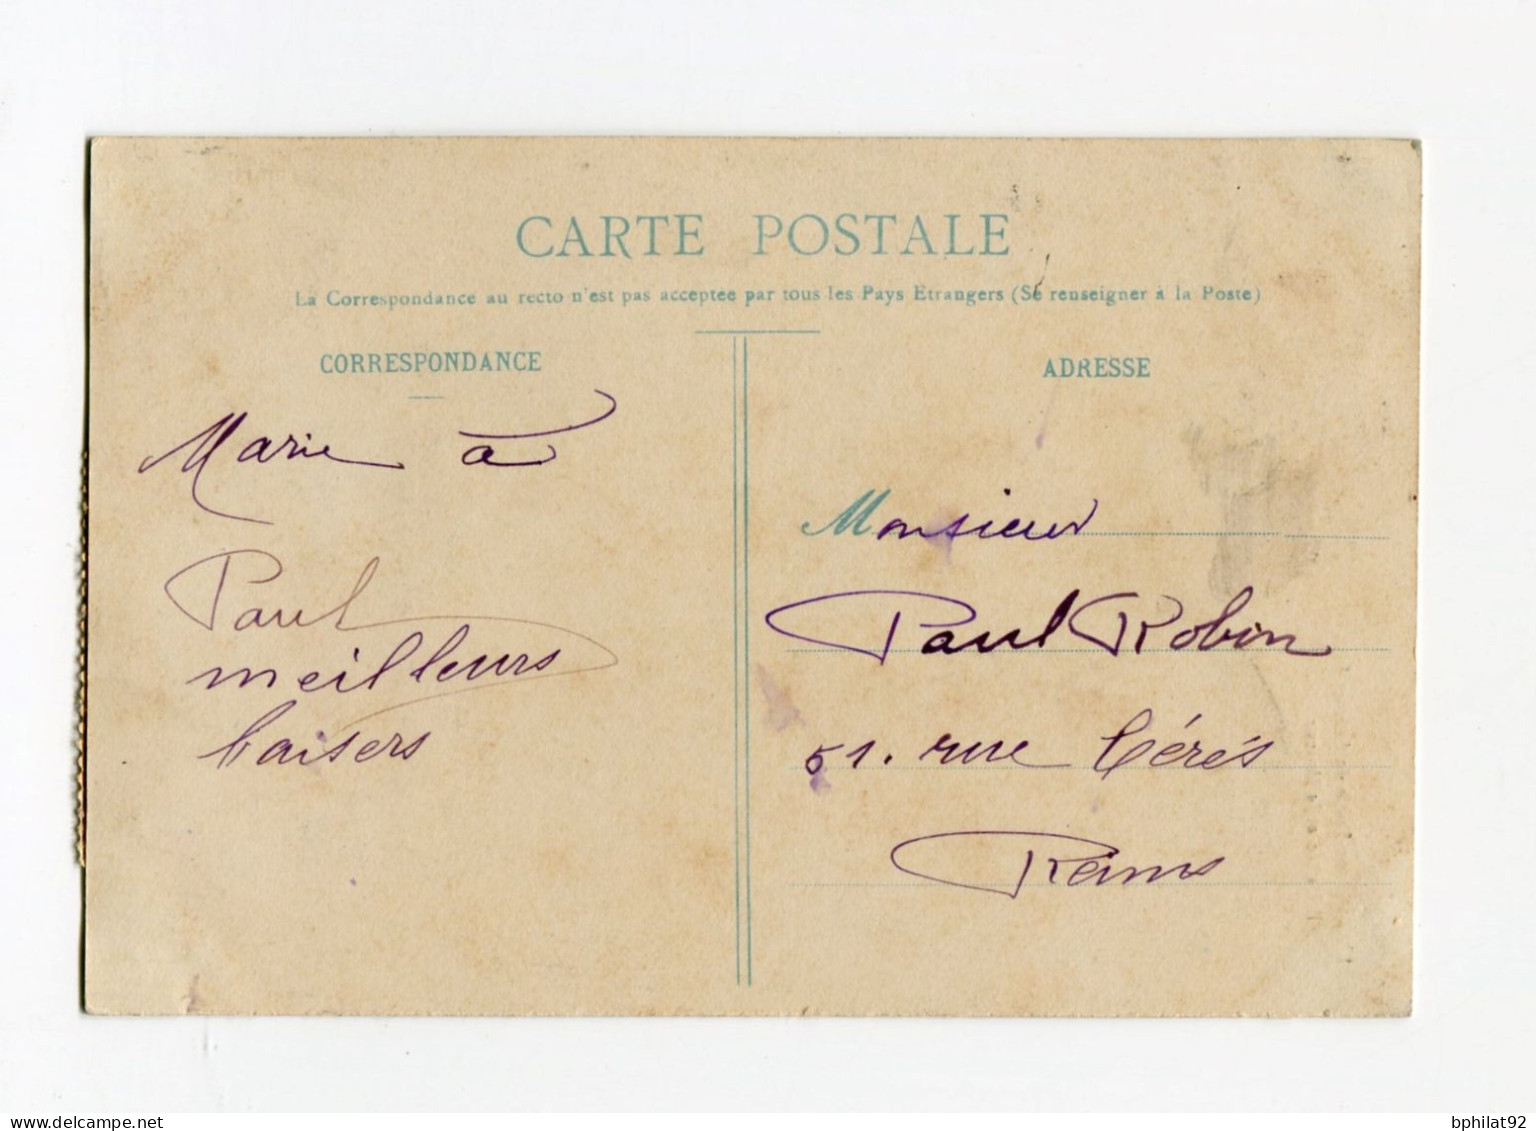 CARTE POSTALE
La Correspondance au recto n'est pas acceptee par tous les Pays Etrangers (Se renseigner à la Poste)
CORRESPONDANCE
Marie à
Paul
meilleurs
baisers
ADRESSE
Monsieur
Paul Robin
51. rue Cérés
Reims
delcampe.net
bphilat92